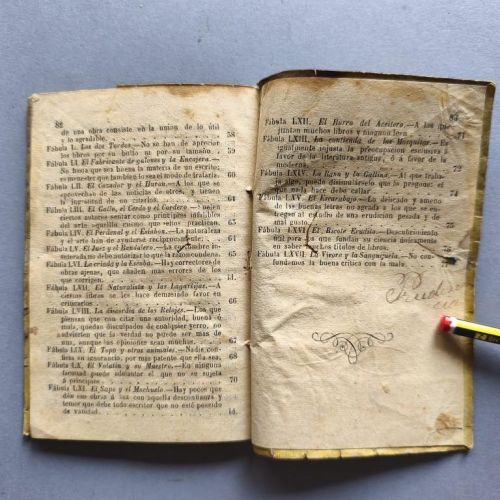 82
de una obra consiste en la union de lo útil
y lo agradable. 58
Fábula L. Los dos Tordos.—No se han de apreciar
los libros por su bulto ni por su tamaño. 59
Fábula LI El Fabricante de galones y la Encajera.—
No basta que sea buena la materia de un escrito;
es menester que tambien lo sea el modo de tratarla.
Fábula LII. El Cazador y el Huron.—A los que se
aprovechan de las noticias de otros, y tienen
la ingratitud de no citarlos.
Fábula LIII. El Gallo, el Cerdo y el Cordero.—Suelen
ciertos autores sentar como principios infalibles
del arte aquello mismo que ellos practican.
Fábula LIV. El Pedernal y el Eslabon.—La naturaleza
y el arte han de ayudarse recíprocamente.
Fábula LV. El Juez y el Bandolero.—La costumbre in-
veterada no debe autorizar lo que la razon condena.
Fábula LVI. La criada y la Escoba.—Hay correctores de
obras ajenas, que añaden mas errores de los
que corrigen.
Fábula LVII. El Naturalista y las Lagartijas.—A
ciertos libros se les hace demasiado favor en
criticarlos. 66
Fábula LVIII. La discordia de los Relojes.—Los que
piensan que con citar una autoridad, buena ó
mala, quedan disculpados de cualquier yerro, no
advierten que la verdad no puede ser mas de
una, aunque las opiniones sean muchas. 67
Fábula LIX. El Topo y otros animales.—Nadie confie-
sa su ignorancia, por mas patente que ella sea. 68
Fábula LX. El Volatin y su Maestro.—En ninguna
facultad puede adelantar el que no se sujeta
á principios. 70
Fábula LXI. El Sapo y el Mochuelo.—Hay pocos que
den sus obras á luz con aquella desconfianza y
temor que debe todo escritor que no esté poseido
de vanidad. id.
83
Fábula LXII. El Burro del Aceitero.—A los que
juntan muchos libros y ninguno leen. 71
Fábula LXIII. La contienda de los Mosquitos.—Es
igualmente injusta la preocupacion esclusiva á
favor de la literatura antigua, ó á favor de la
moderna. 72
Fábula LXIV. La Rana y la Gallina.—Al que traba-
ja algo, puede disimulársele que lo pregone: el
que nada hace debe callar. 74
Fábula LXV. El Escarabajo.—Lo delicado y ameno
de las buenas letras no agrada á los que se en-
tregan al estudio de una erudicion pesada y de
mal gusto. 75
Fábula LXVI. El Ricote Erudito.—Descubrimiento
útil para los que fundan su ciencia únicamente
en saber muchos títulos de libros.
Fábula LXVII. La Vívora y la Sanguijuela.—No con-
fundamos la buena crítica con la mala.